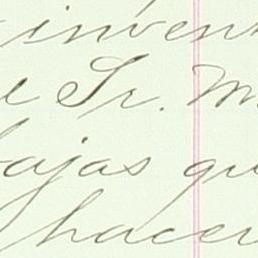 invent
e Sr. M
bajas qu
hacer